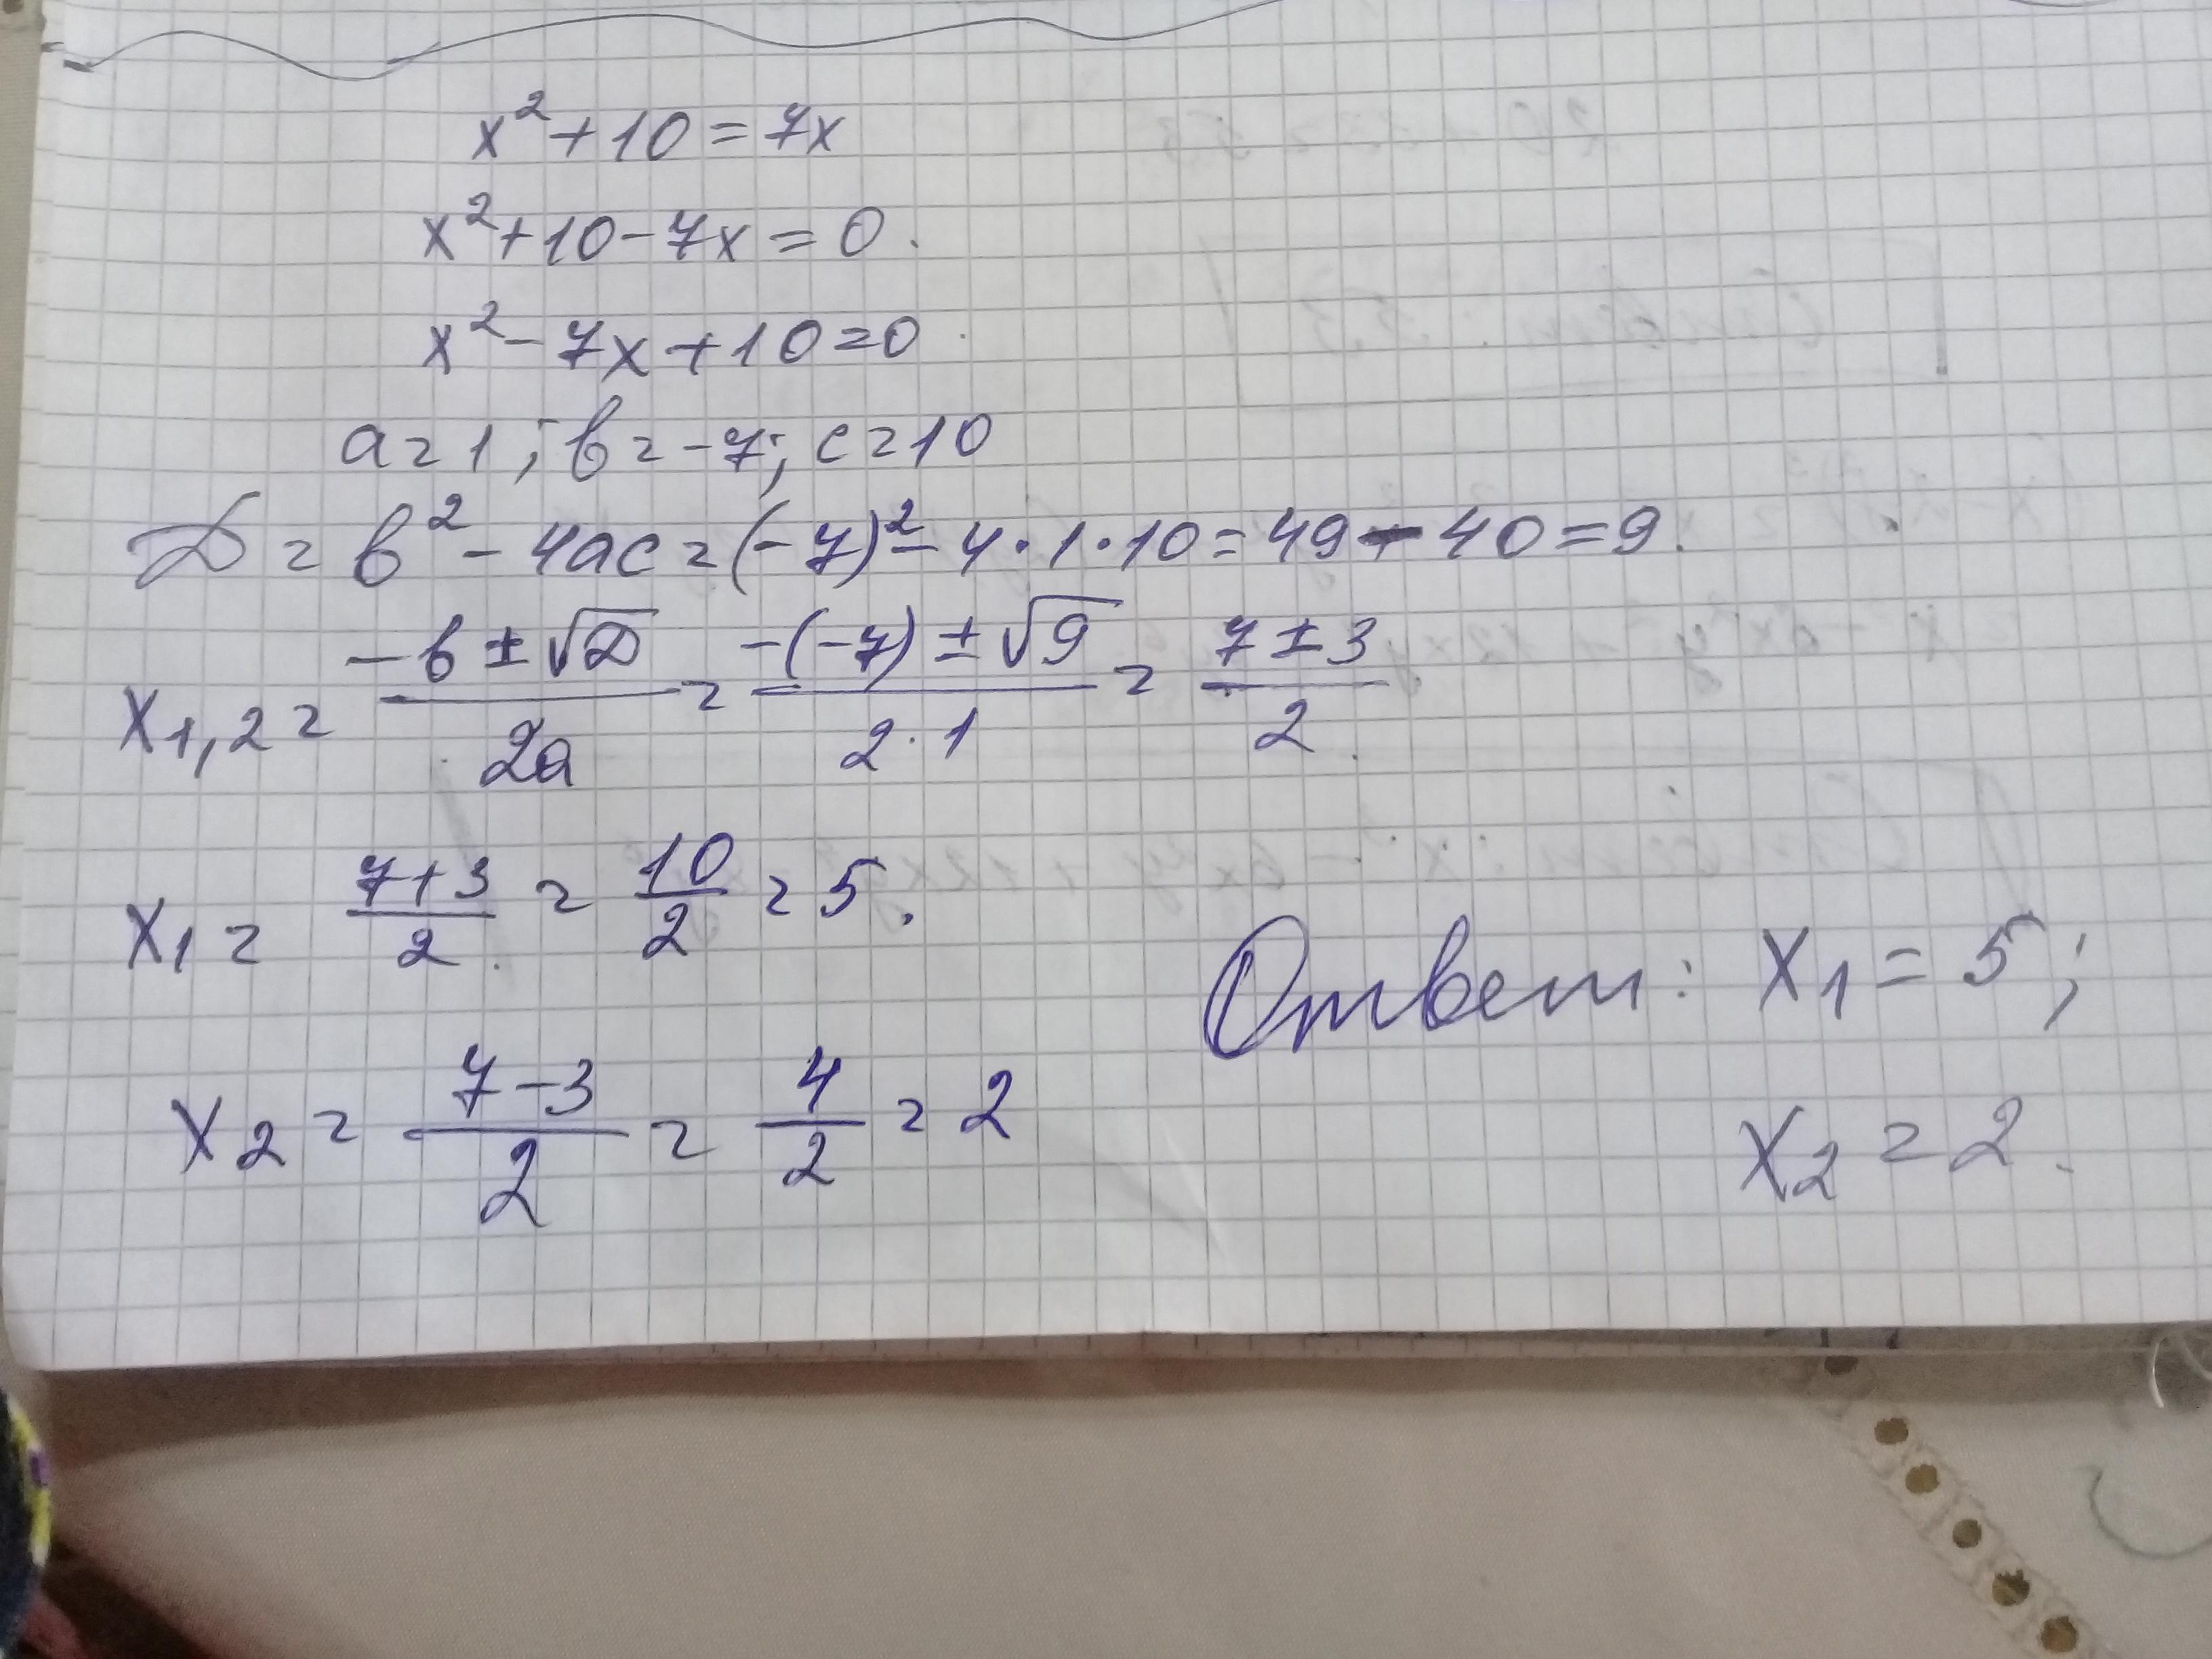 x² + 10 = 7x
x² + 10 - 7x = 0.
x² - 7x + 10 = 0.
a = 1; b = -7; c = 10
D = b² - 4ac = (-7)² - 4·1·10 = 49 - 40 = 9.
x₁,₂ = (-b ± √D)/2a = (-(-7) ± √9)/(2·1) = (7 ± 3)/2.
x₁ = (7+3)/2 = 10/2 = 5.
Ответ: x₁ = 5;
x₂ = (7-3)/2 = 4/2 = 2
x₂ = 2.